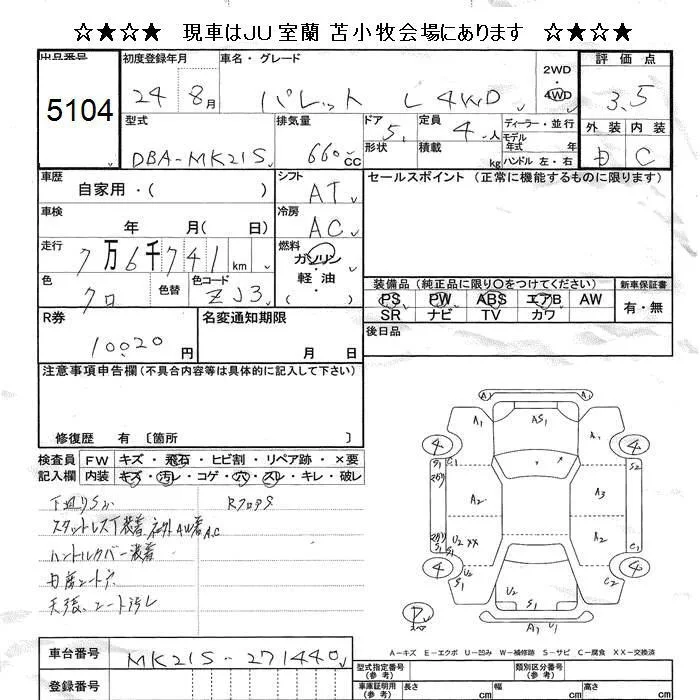 ☆★☆★ 現車はJU室蘭 苫小牧会場にあります ☆★☆★
出品番号 初度登録年月 車名・グレード 2WD・4WD 評価点
5104 24年 8月 パレット L 4WD 3.5
型式 排気量 ドア 定員 ディーラー・並行 外装 内装
DBA-MK21S 660cc 5 4人 モデル年式 年 D C
形状 積載 kg ハンドル 左・右
車歴 シフト セールスポイント (正常に機能するものに限ります)
自家用・( ) AT
車検 冷房
年 月( 日) AC
走行 燃料
7万6千741km ガソリン・軽油 ( )
色 色替 色コード 装備品 (純正品に限り○をつけてください) 新車保証書
クロ ZJ3 PS PW ABS エアB AW 有・無
SR ナビ TV カワ
R券 名変通知期限 後日品
10020円 月 日
注意事項申告欄(不具合内容等は具体的に記入して下さい)
修復歴 有 〔箇所 〕
検査員 FW キズ・飛石・ヒビ割・リペア跡・×要
記入欄 内装 キズ・汚レ・コゲ・穴・スレ・キレ・破レ
下廻りS
スタットレスT装着 社外AW着 A.C
ハンドルカバー装着
A1 AS1 A1 A1
4 4 S1 C1 S2
A2 A3
U2 XX A2
4 4 S1 U2 C2 C1
S1 A1 U1
A-キズ E-エクボ U-凹み W-補修跡 S-サビ C-腐食 XX-交換済
車台番号 MK21S-271440 型式指定番号(参考) 類別区分番号(参考)
登録番号 車庫証明用(参考) 長さ cm 幅 cm 高さ cm